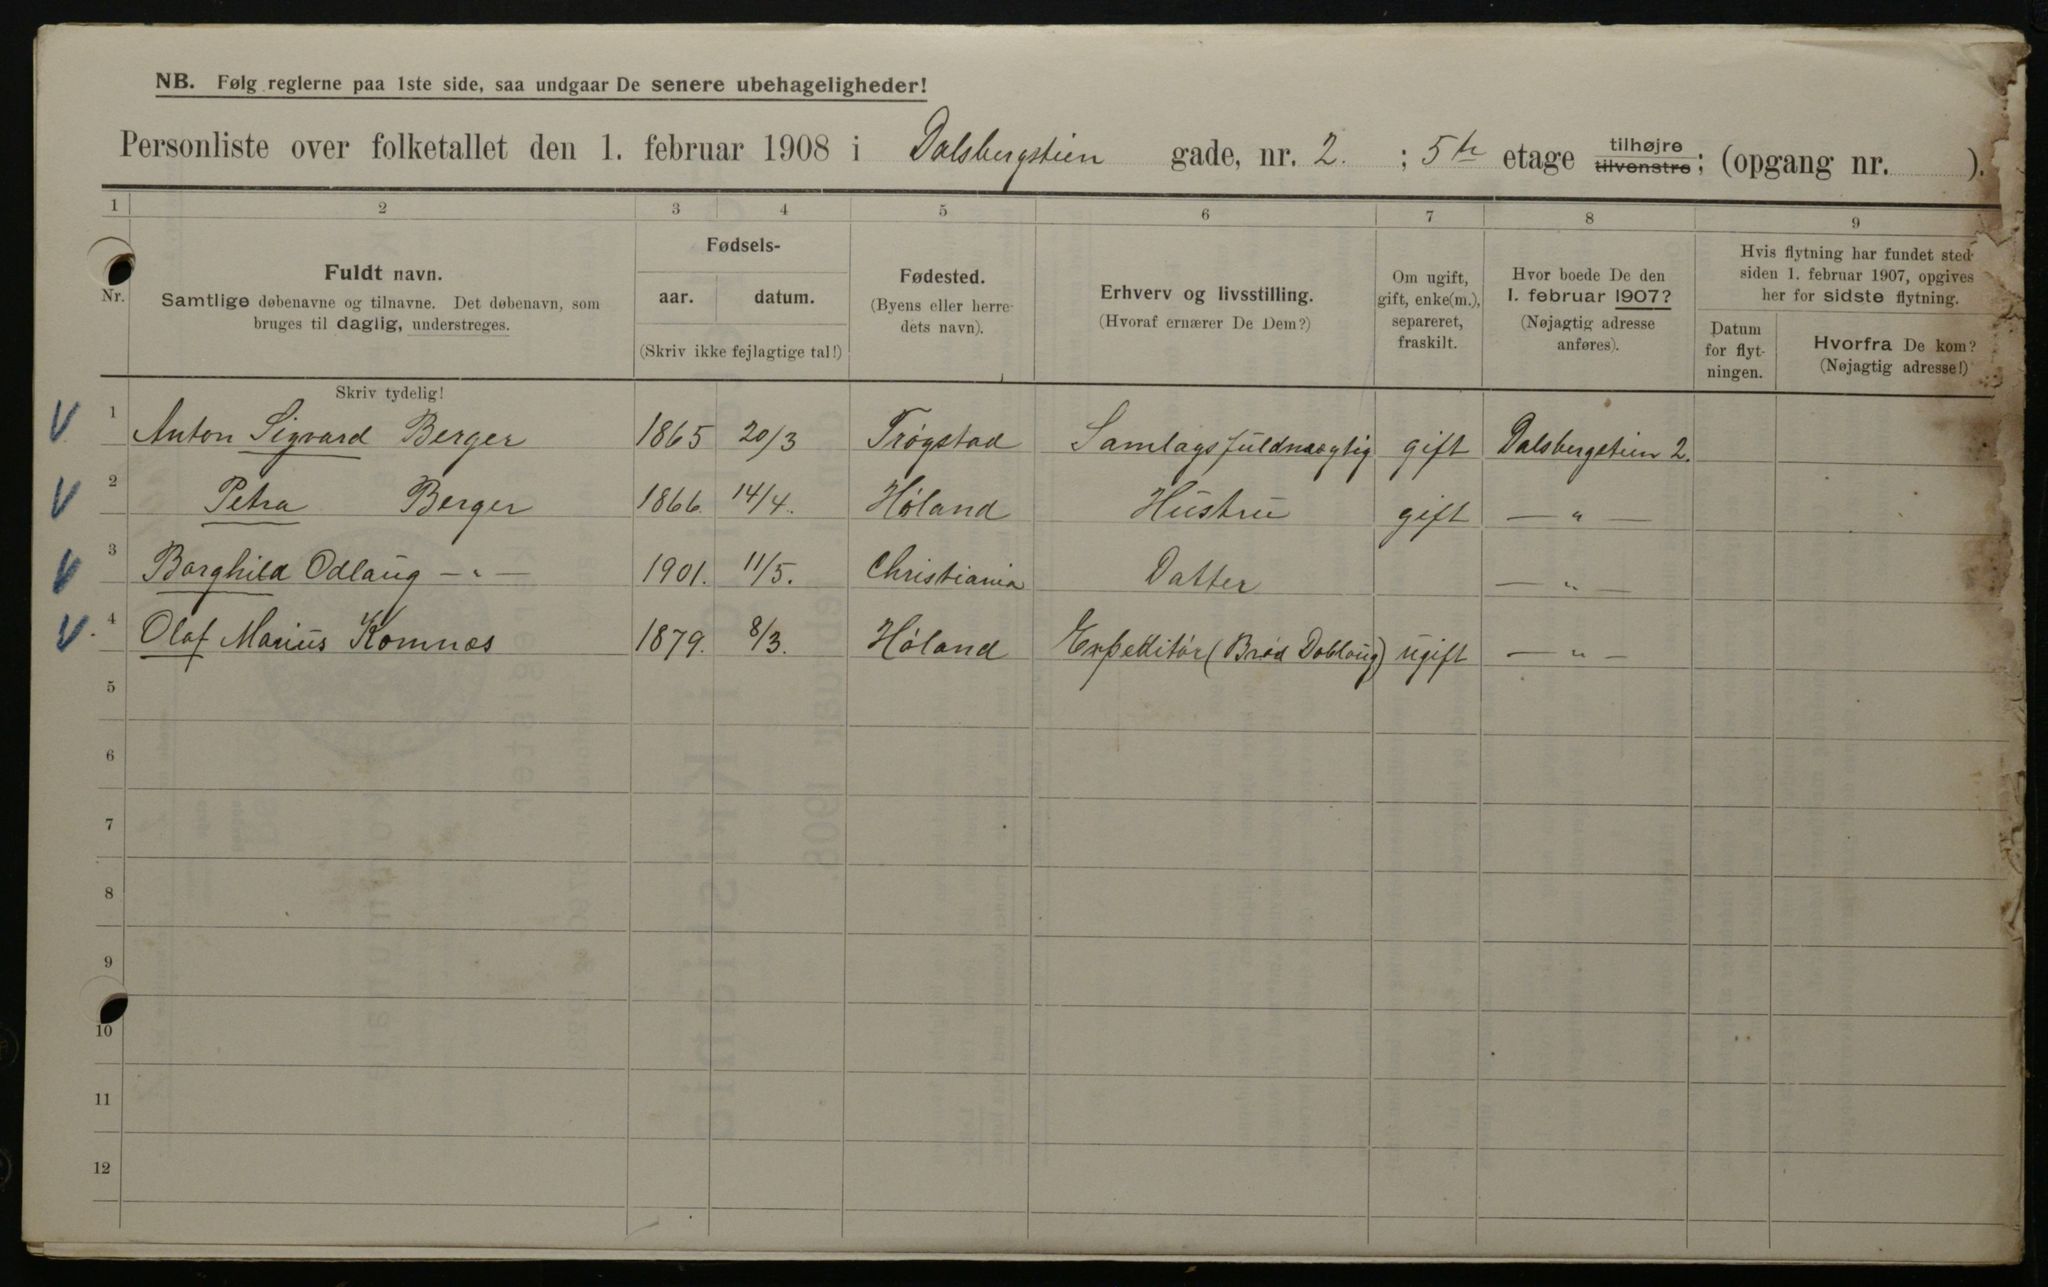 NB. Følg reglerne paa 1ste side, saa undgaar De senere ubehageligheder!
Personliste over folketallet den 1. februar 1908 i Dalsbergstien gade, nr. 2. ; 5te etage tilhøjre tilvenstre; (opgang nr. ).
1 2 3 4 5 6 7 8 9
Nr.
Fuldt navn.
Samtlige døbenavne og tilnavne. Det døbenavn, som
bruges til daglig, understreges.
Fødsels-
aar. datum.
(Skriv ikke fejlagtige tal!)
Fødested.
(Byens eller herre-
dets navn).
Erhverv og livsstilling.
(Hvoraf ernærer De Dem?)
Om ugift,
gift, enke(m.),
separeret,
fraskilt.
Hvor boede De den
1. februar 1907?
(Nøjagtig adresse
anføres).
Hvis flytning har fundet sted
siden 1. februar 1907, opgives
her for sidste flytning.
Datum
for flyt-
ningen.
Hvorfra De kom?
(Nøjagtig adresse!)
Skriv tydelig!
1 Anton Sigvard Berger 1865 20/3 Trøgstad Samlagsfuldmægtig gift Dalsbergstien 2.
2 Petra Berger 1866. 14/4. Høland Hustru gift — " —
3 Borghild Odlaug — " — 1901. 11/5. Christiania Datter — " —
4 Olaf Marius Komnæs 1879. 8/3. Høland Expeditør (Brød Dobloug) ugift — " —
5
6
7
8
9
10
11
12